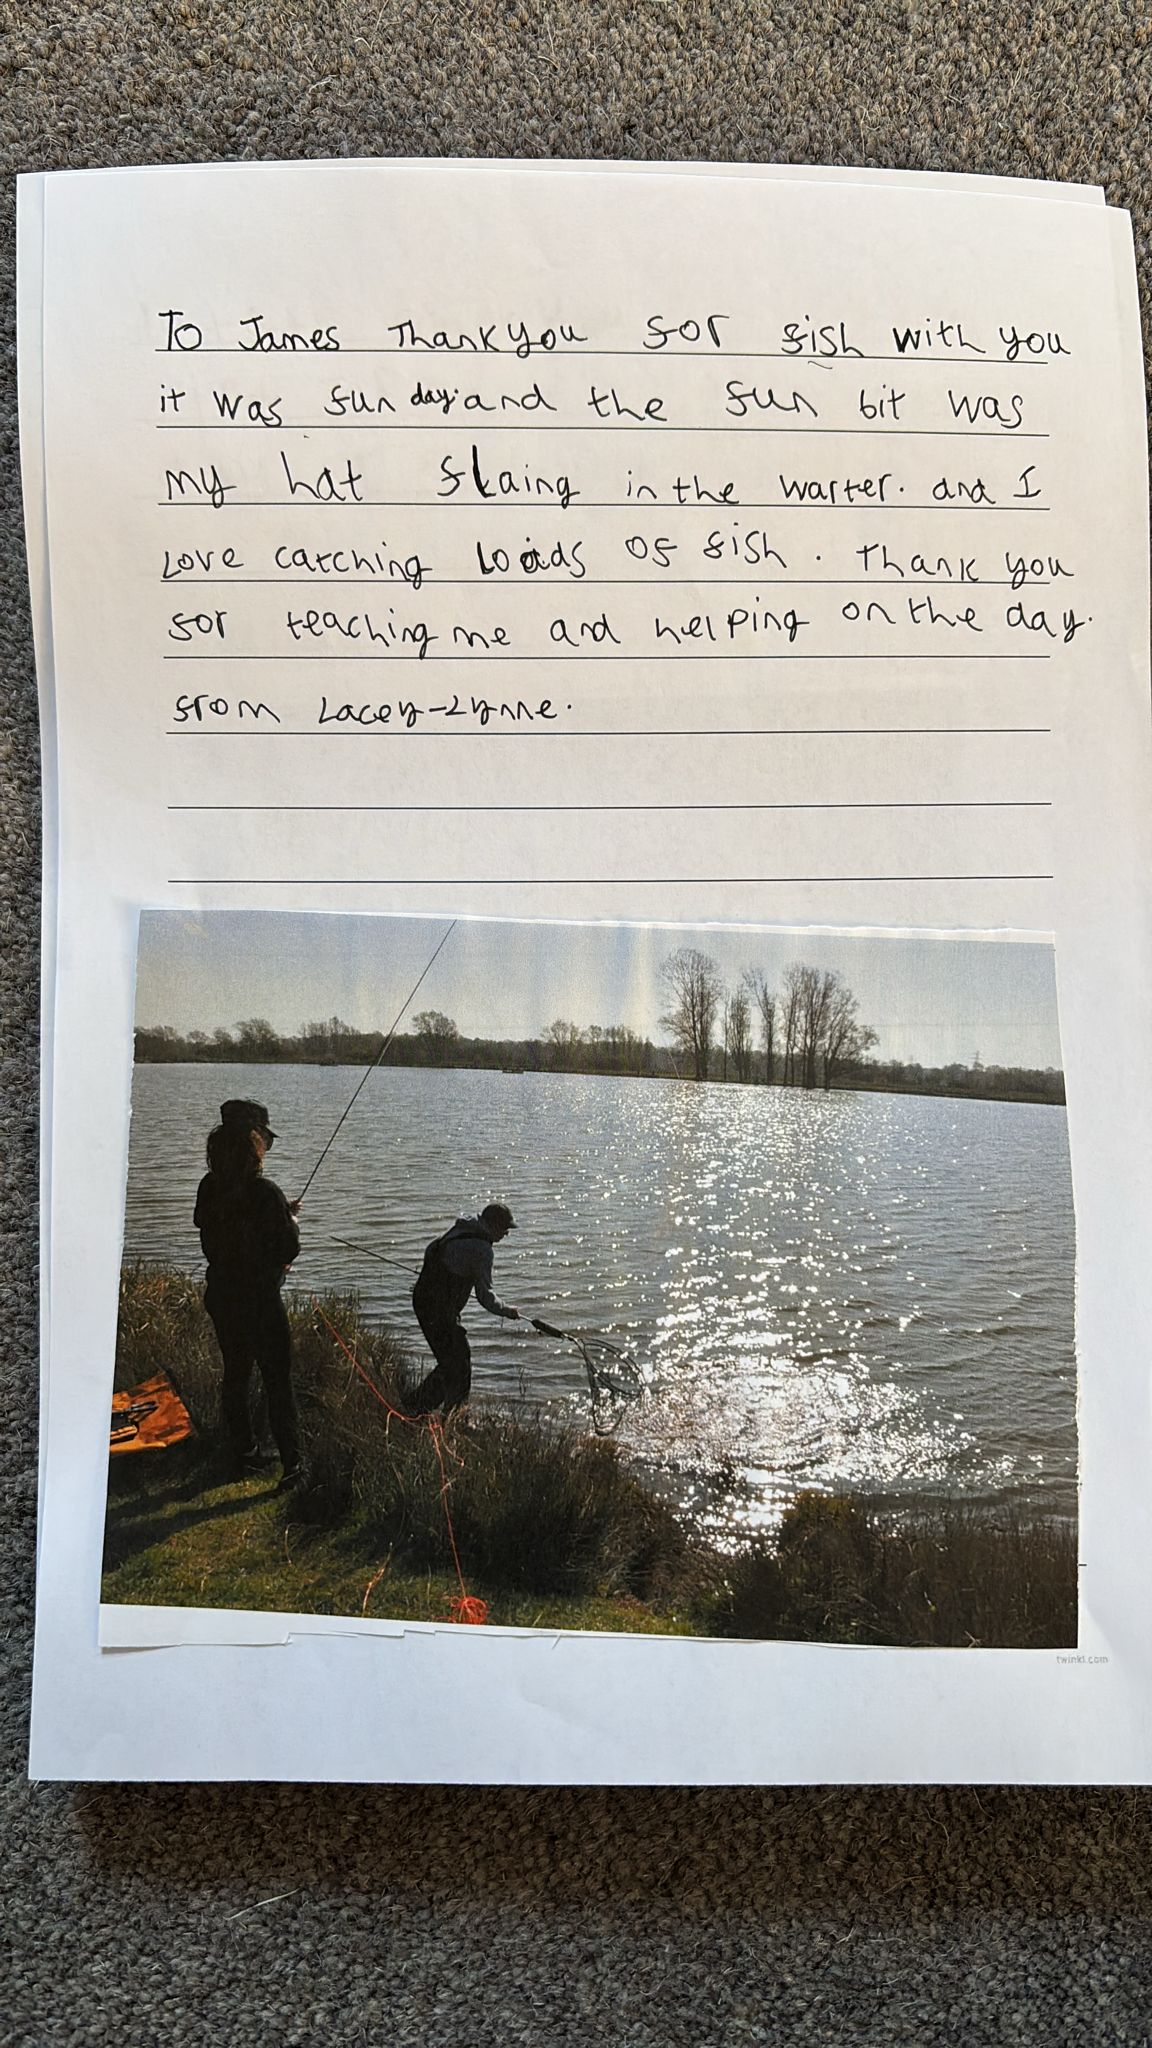 To James Thankyou for fish with you
it was fun day. and the fun bit was
my hat flaing in the warter. and I
Love catching Loads of fish. Thank you
for teaching me and helping on the day.
from Lacey-Lynne.
twinkl.com